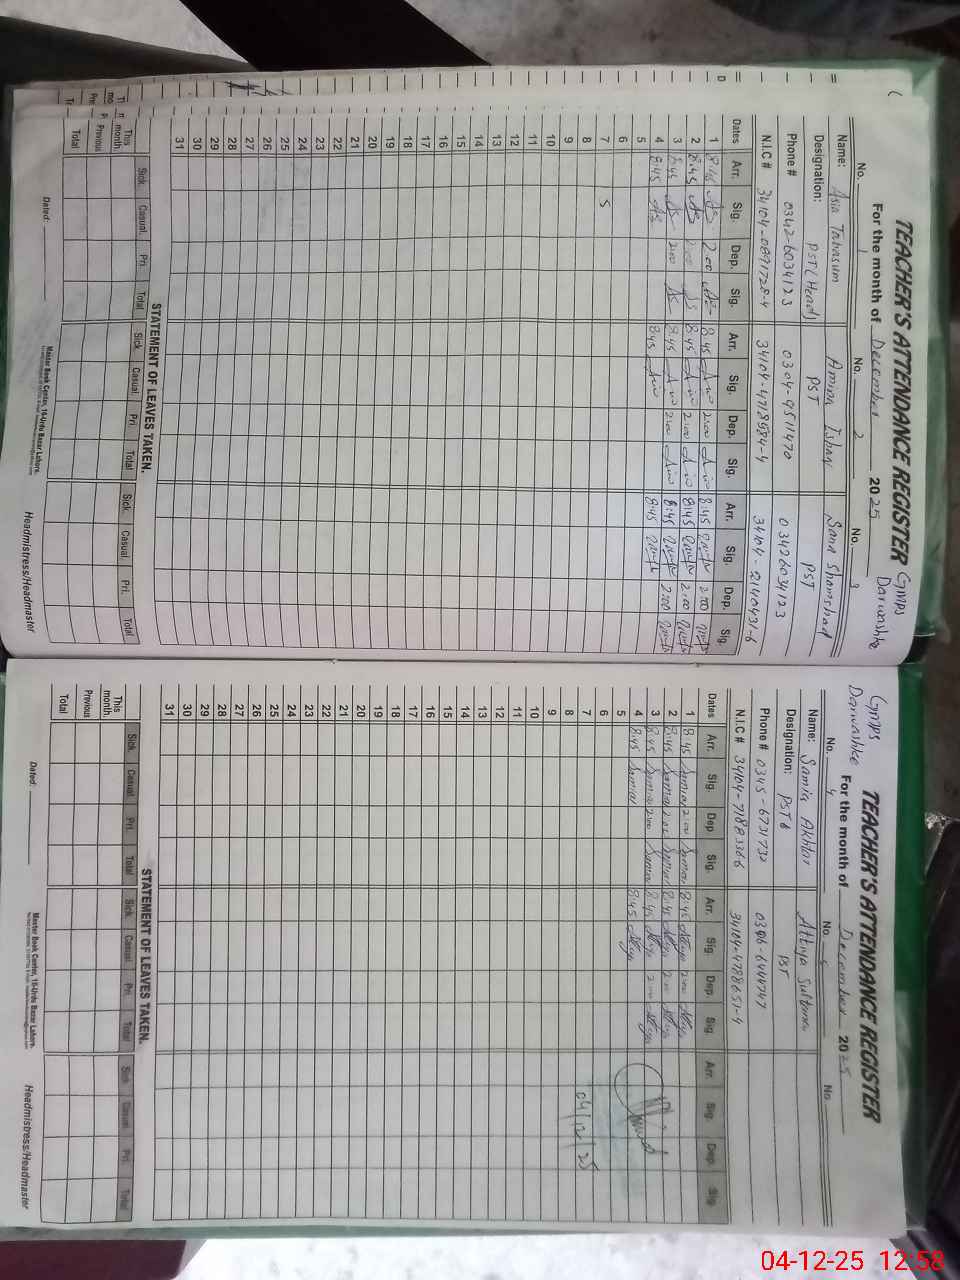 TEACHER'S ATTENDANCE REGISTER GMPS
Darwashke
For the month of December 2025
No. 1 No. 2 No. 3
Name: Asia Tabasum Amina Ishaq Sana Shamshad
Designation: PST (Head) PST PST
Phone # 0342-6034123 0304-9511470 03426034123
N.I.C # 34104-0891728-4 34104-4718984-4 34104-2140431-6
Dates Arr. Sig. Dep. Sig. Arr. Sig. Dep. Sig. Arr. Sig. Dep. Sig.
1 8:45 2:00 8:45 2:00 8:45 2:00
2 8:45 2:00 8:45 2:00 8:45 2:00
3 8:45 2:00 8:45 2:00 8:45 2:00
4 8:45 8:45 8:45
5
6
7 S
8
9
10
11
12
13
14
15
16
17
18
19
20
21
22
23
24
25
26
27
28
29
30
31
STATEMENT OF LEAVES TAKEN.
Sick. Casual. Pri. Total Sick. Casual. Pri. Total Sick. Casual. Pri. Total
This month.
Previous
Total
Dated: Master Book Center, 16-Urdu Bazar Lahore. Headmistress/Headmaster
GMPS
Darwashke
TEACHER'S ATTENDANCE REGISTER
For the month of December 2025
No. 4 No. 5 No.
Name: Samia Akhtar Attiya Sultana
Designation: PST PST
Phone # 0345-6731732 0306-6444747
N.I.C # 34104-7188336-6 34104-4788651-4
Dates Arr. Sig. Dep. Sig. Arr. Sig. Dep. Sig. Arr. Sig. Dep. Sig.
1 8:45 Samia 2:00 Samia 8:45 Attiya 2:00 Attiya
2 8:45 Samia 2:00 Samia 8:45 Attiya 2:00 Attiya
3 8:45 Samia 2:00 Samia 8:45 Attiya 2:00 Attiya
4 8:45 Samia 8:45 Attiya
5
6
7 04/12/25
8
9
10
11
12
13
14
15
16
17
18
19
20
21
22
23
24
25
26
27
28
29
30
31
STATEMENT OF LEAVES TAKEN.
Sick. Casual. Pri. Total Sick. Casual. Pri. Total Sick Casual. Pri. Total
This month.
Previous
Total
Dated: Master Book Center, 16-Urdu Bazar Lahore. Headmistress/Headmaster
04-12-25 12:58